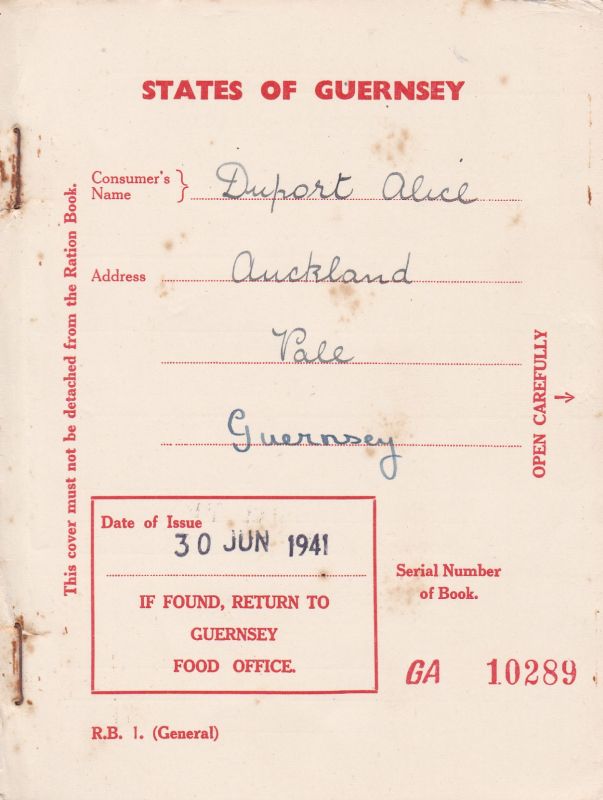 STATES OF GUERNSEY
Consumer's Name } Duport Alice
Address Auckland
Vale
Guernsey
This cover must not be detached from the Ration Book.
OPEN CAREFULLY →
Date of Issue
30 JUN 1941
IF FOUND, RETURN TO
GUERNSEY
FOOD OFFICE.
Serial Number
of Book.
GA 10289
R.B. 1. (General)